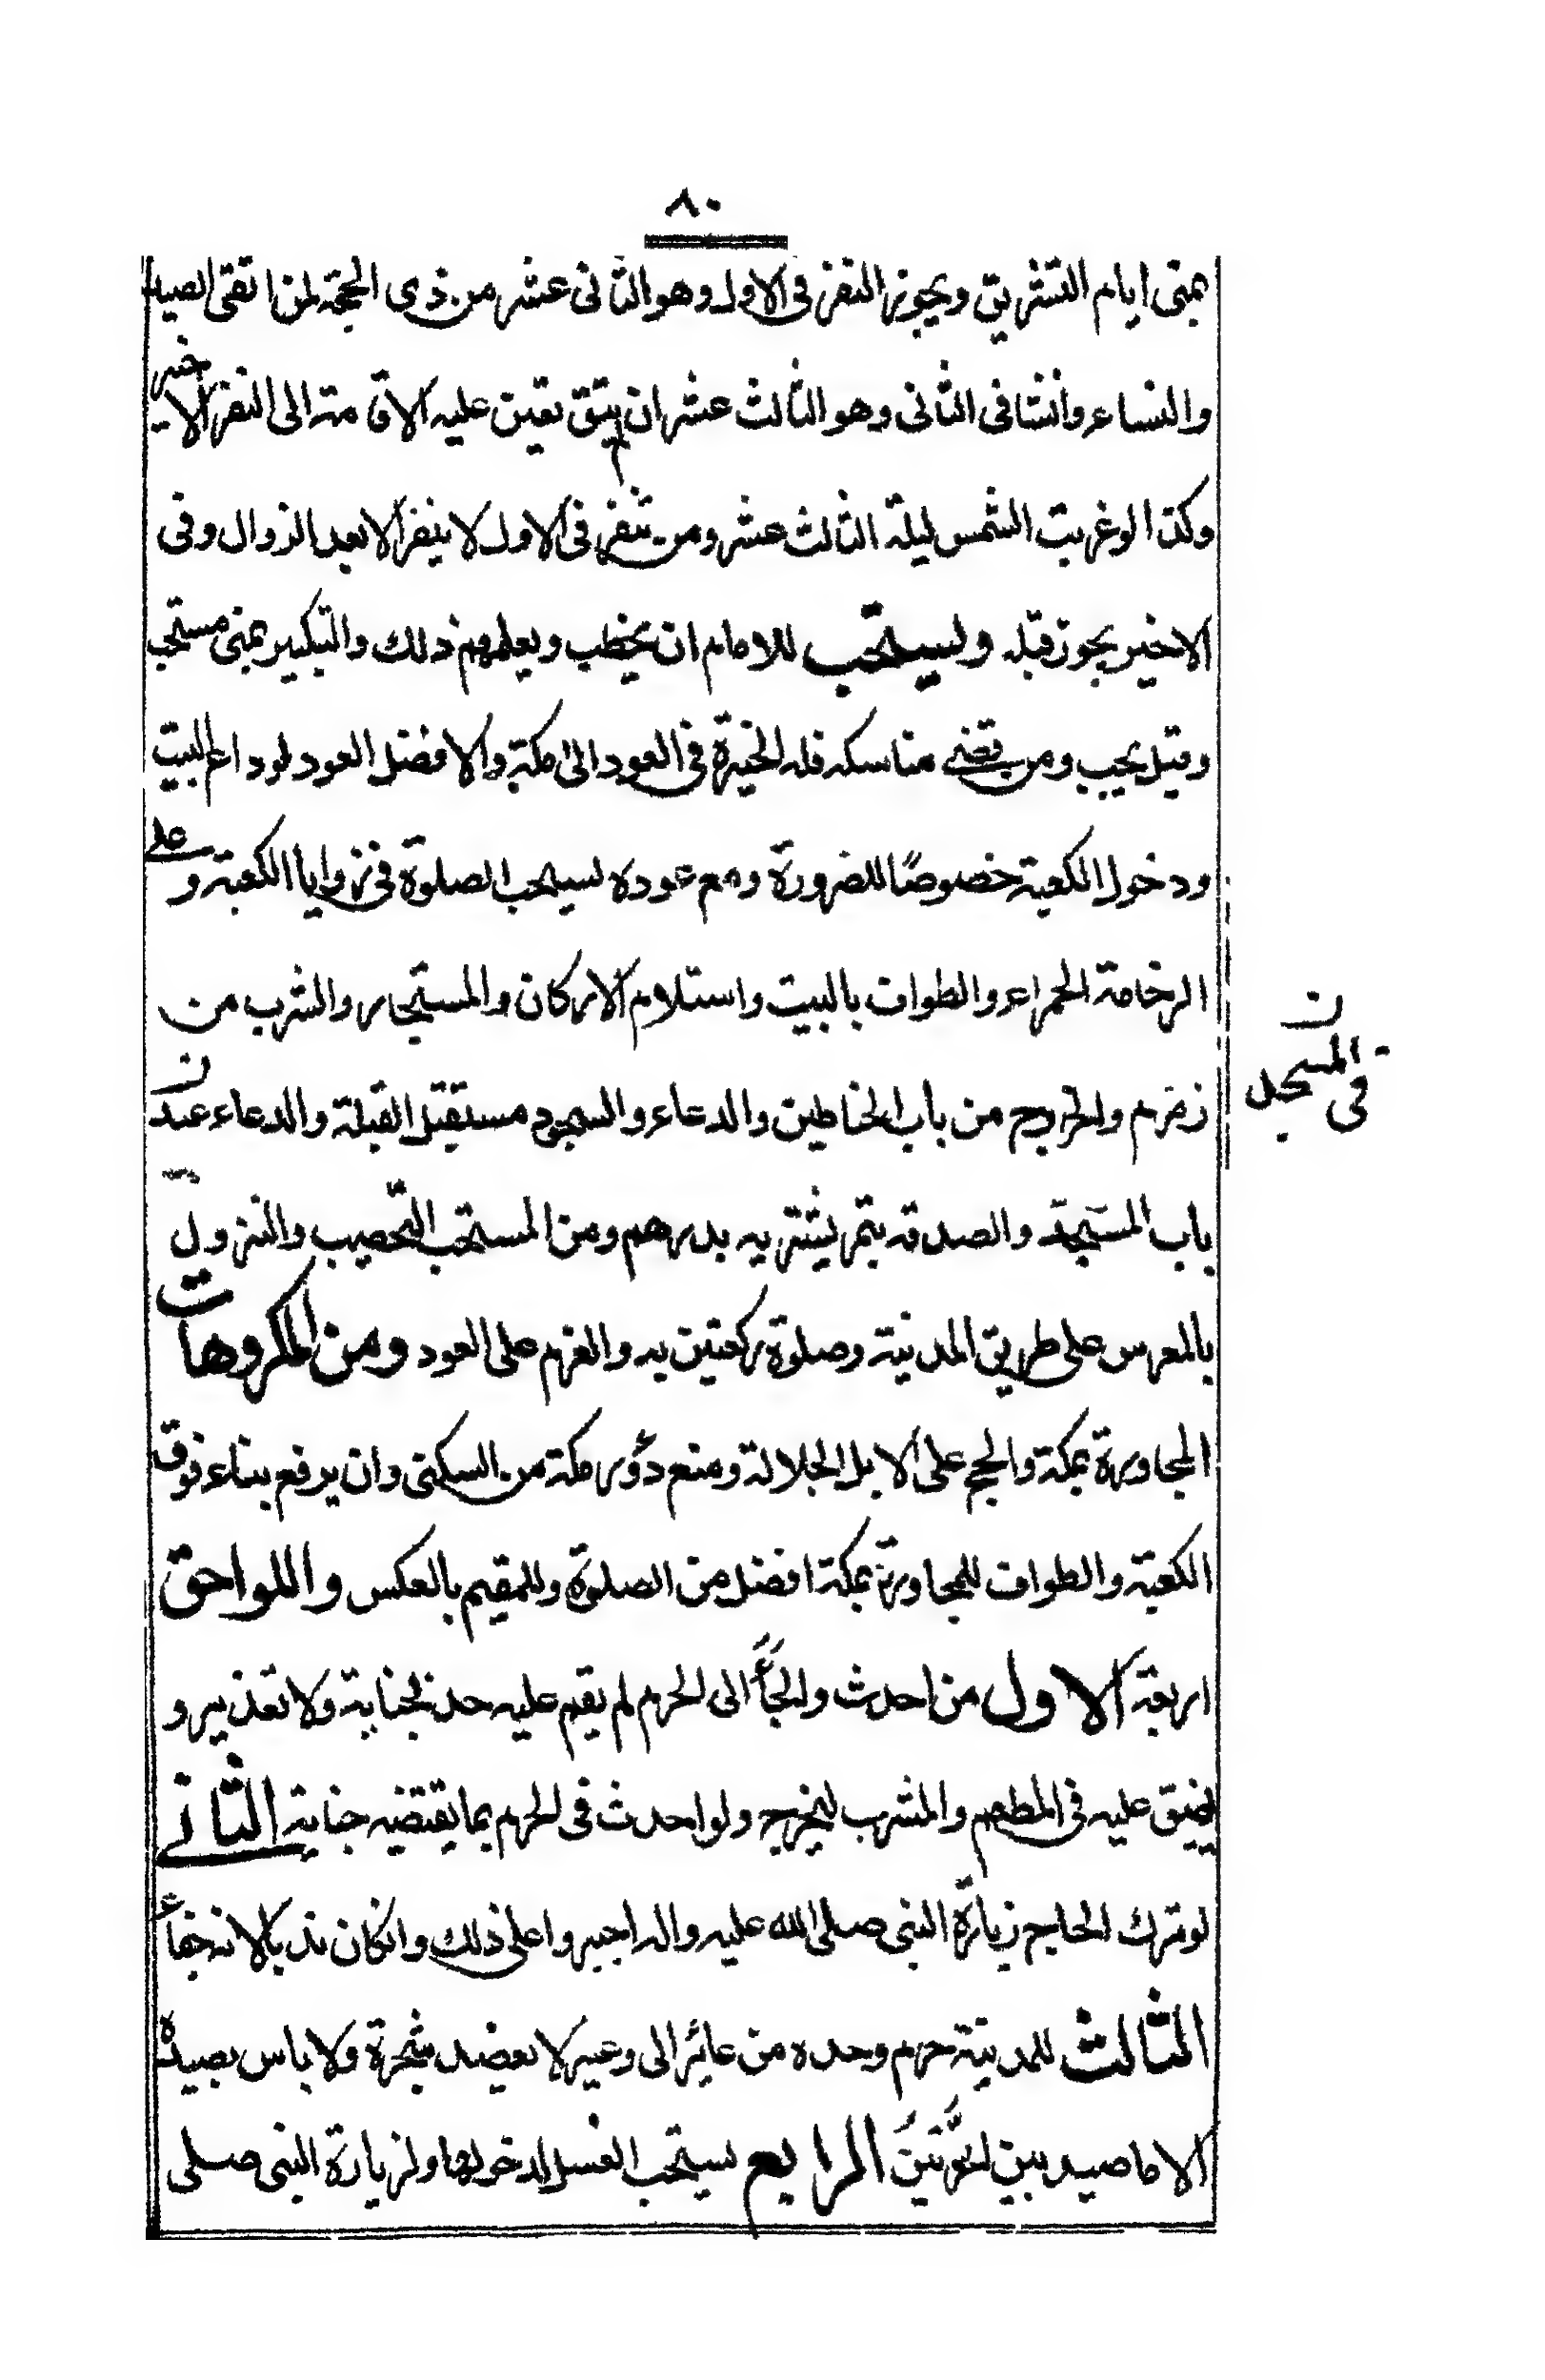 ٨٠
بمنى ايام التشريق ويجوز النفر فى الاول وهو الثانى عشر من ذى الحجة لمن اتقى الصيد
والنساء وانشا فى الثانى وهو الثالث عشر ان لم يتق تعين عليه الاقامة الى النفر الاخير
وكذا لو غربت الشمس ليلة الثالث عشر ومن نفر فى الاول لا ينفر الا بعد الزوال وفى
الاخير يجوز قبله ويستحب للامام ان يخطب ويعلمهم ذلك والتكبير بمنى مستحب
وقيل يجب ومن قضى مناسكه فله الخيرة فى العود الى مكة والافضل العود لوداع البيت
ودخول الكعبة خصوصًا للضرورة ومع عوده يستحب الصلوة فى زوايا الكعبة وعلى
الرخامة الحمراء والطواف بالبيت واستلام الاركان والمستجار والشرب من
زمزم والخروج من باب الحناطين والدعاء والسجود مستقبل القبلة والدعاء عند
ن
فى المسجد
باب المسجد والصدقة بتمر يشتريه بدرهم ومن المستحب التحصيب والنزول
بالمعرس على طريق المدينة وصلوة ركعتين به والعزم على العود ومن المكروهات
المجاورة بمكة والحج على الابل الجلالة ومنع دؤر مكة من السكنى وان يرفع بناء فوق
الكعبة والطواف للمجاورة بمكة افضل من الصلوة وللمقيم بالعكس واللواحق
اربعة الاول من احدث ولجأ الى الحرم لم يقم عليه حد لجناية ولا تعذير و
يضيق عليه فى المطعم والمشرب ليخرج ولو احدث فى الحرم بما يقتضيه جناية الثانى
لو ترك الحاج زيارة النبى صلى الله عليه واله اجبروا على ذلك وانكان ندبا لانه جفاء
الثالث للمدينة حرم وحده من عائر الى وعير لا يعضد شجرة ولا باس بصيده
الا ما صيد بين الحرتين الرابع يستحب الغسل لدخولها ولزيارة النبى صلى